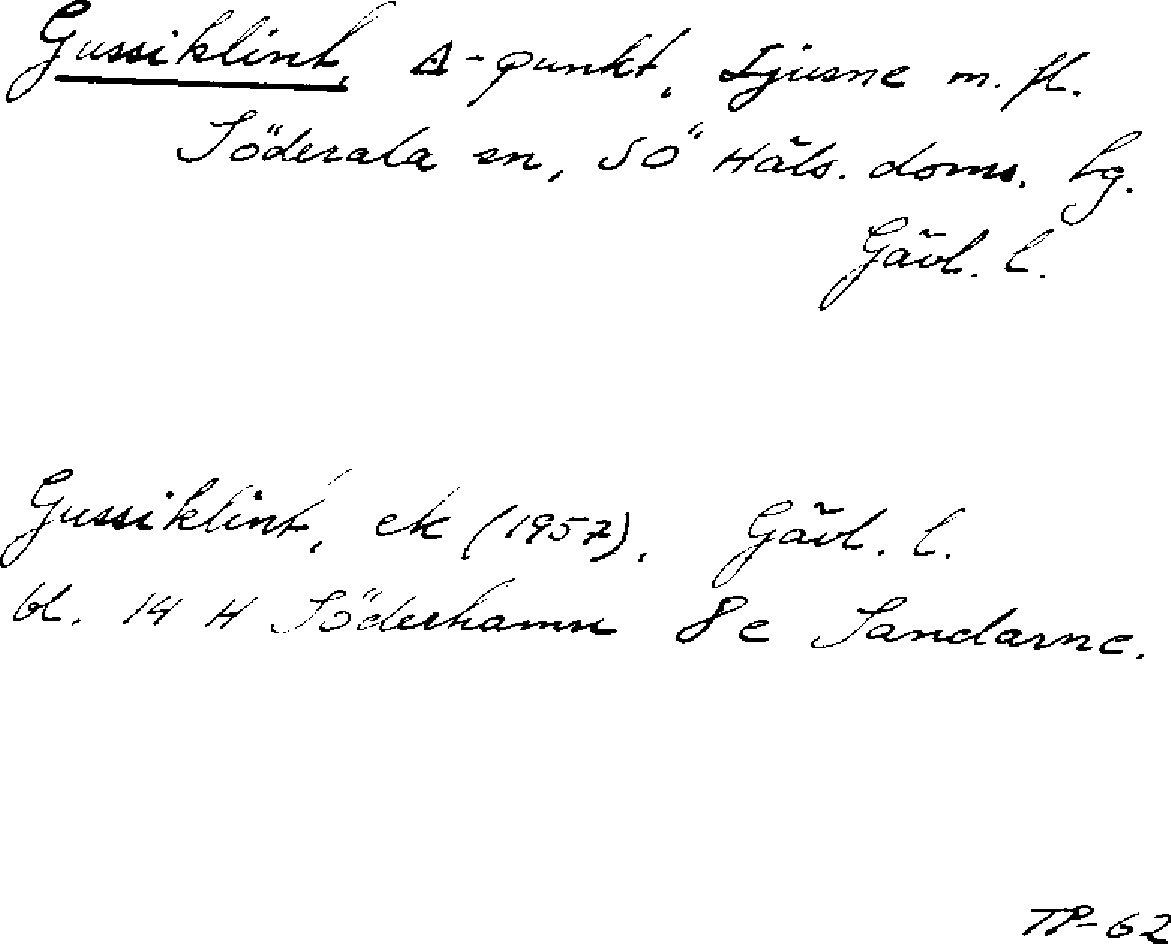 Gussiklint, Δ-punkt, Ljusne m. fl.
Söderala sn, SÖ Häls. doms. hg.
Gävl. l.
Gussiklint, ek (1957). Gävl. l.
bl. 14 H Söderhamn 8e Sandarne.
TP-62